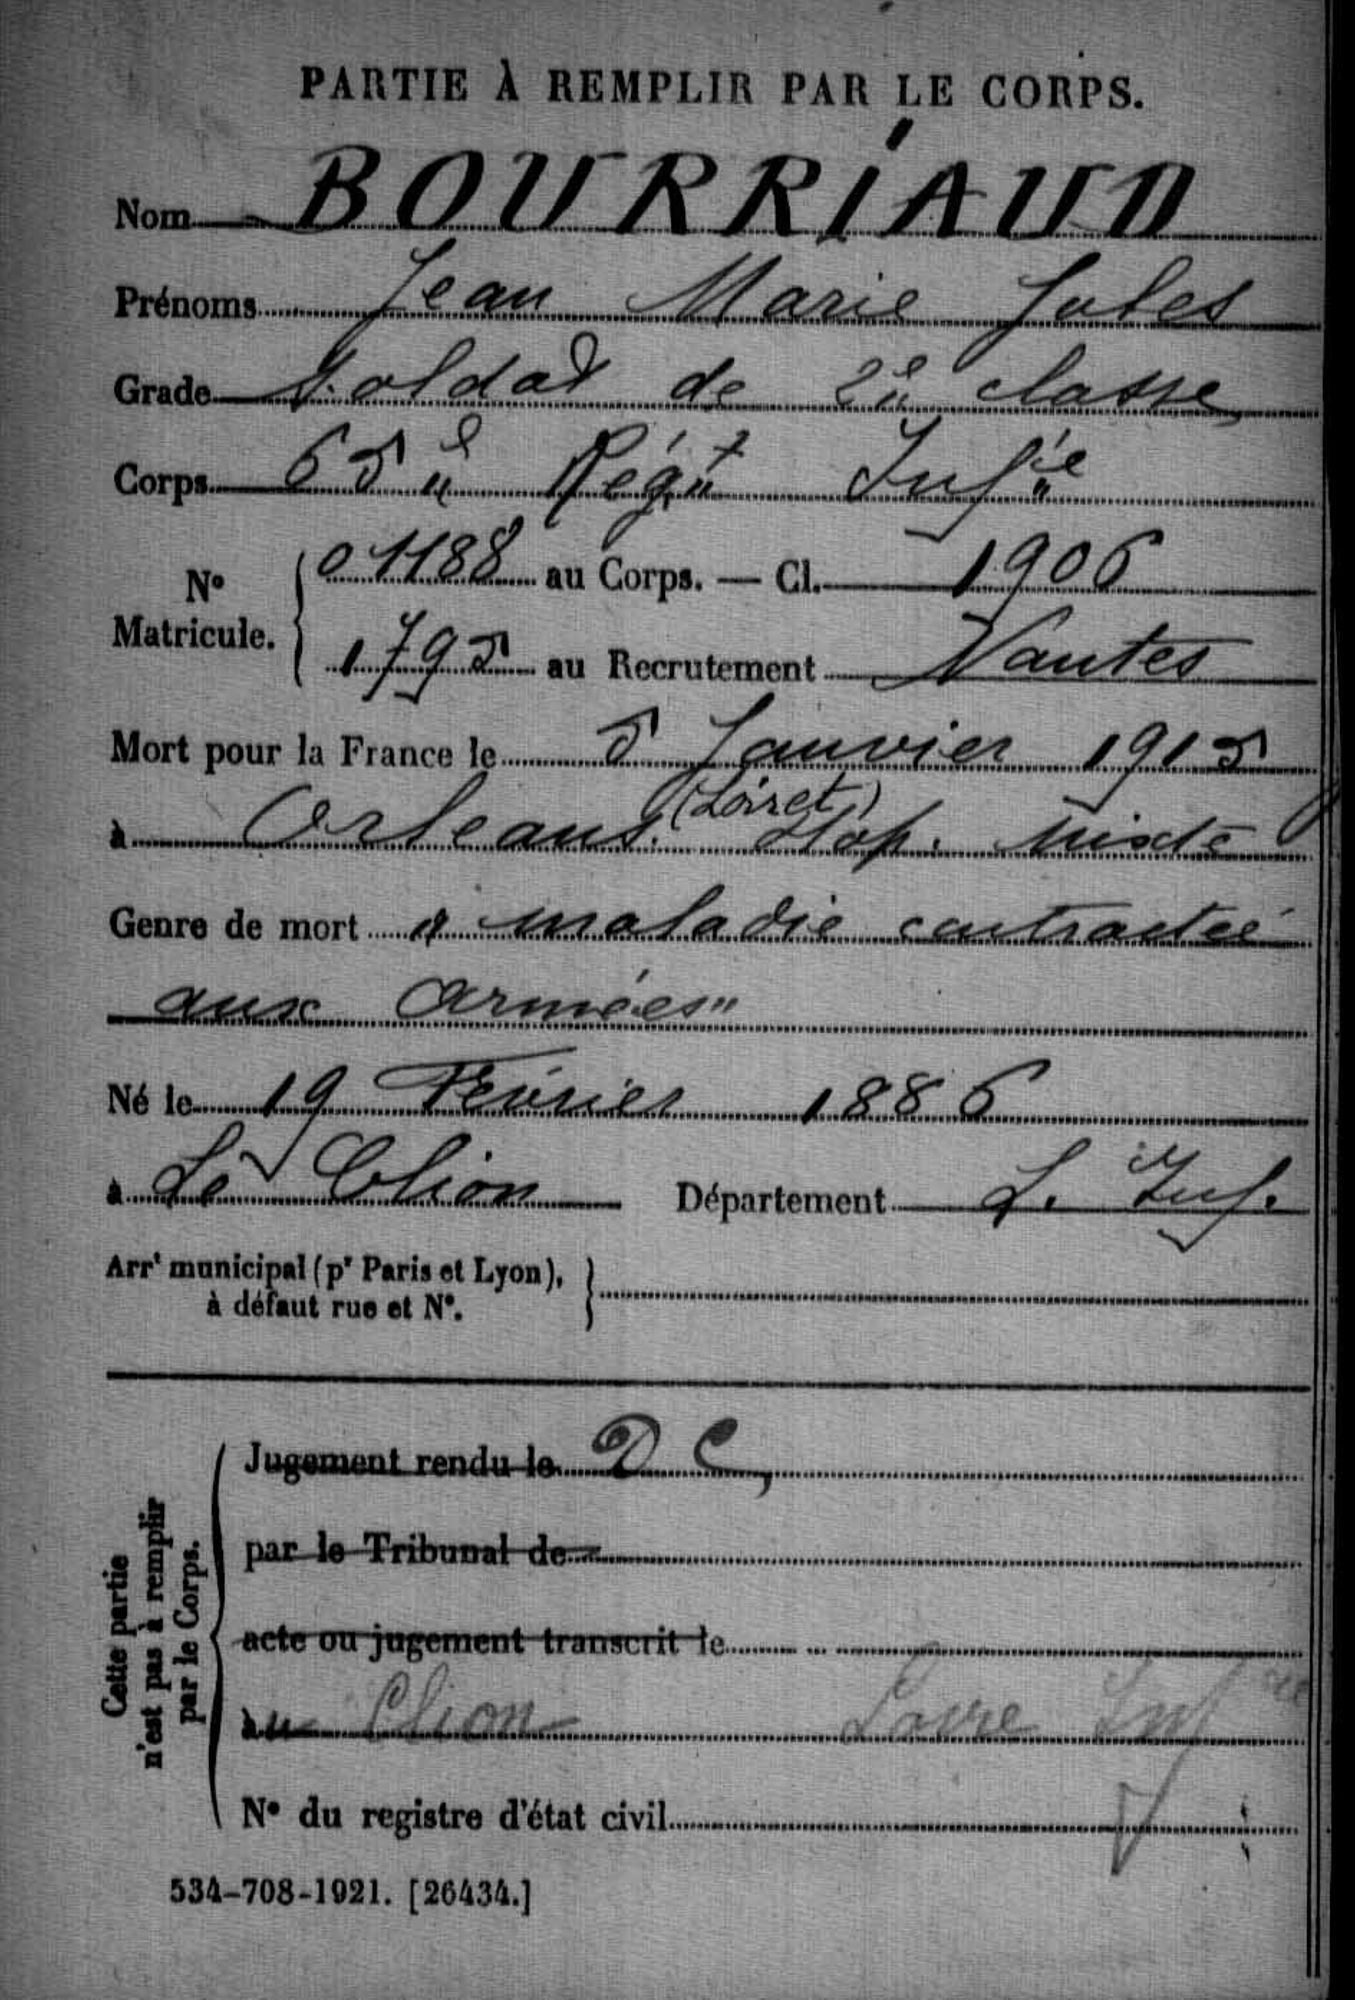 PARTIE À REMPLIR PAR LE CORPS.
Nom BOURRIAUD
Prénoms Jean Marie Jules
Grade Soldat de 2e classe
Corps 65e Régt Infie
No Matricule. 01188 au Corps. — Cl. 1906
1795 au Recrutement Nantes
Mort pour la France le 5 Janvier 1915
à Orléans (Loiret) Hop. mixte
Genre de mort "maladie contractée
aux Armées"
Né le 19 Février 1886
à Le Clion Département L. Inf.
Arrt municipal (pr Paris et Lyon),
à défaut rue et No.
Cette partie
n'est pas à remplir
par le Corps.
Jugement rendu le D C,
par le Tribunal de
acte ou jugement transcrit le
au Clion Loire Infre
No du registre d'état civil
534-708-1921. [26434.]